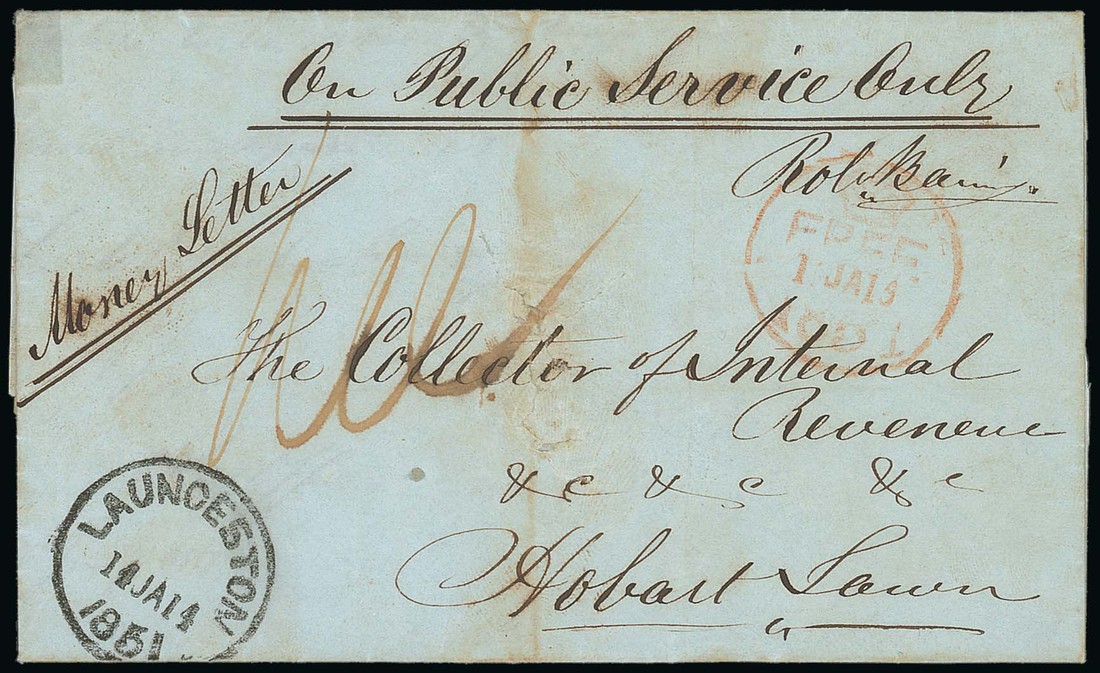 On Public Service Only
Money Letter
FREE
JA 15
The Collector of Internal
Reveneue
&c &c &c
Hobart Town
LAUNCESTON
14 JA 14
1851